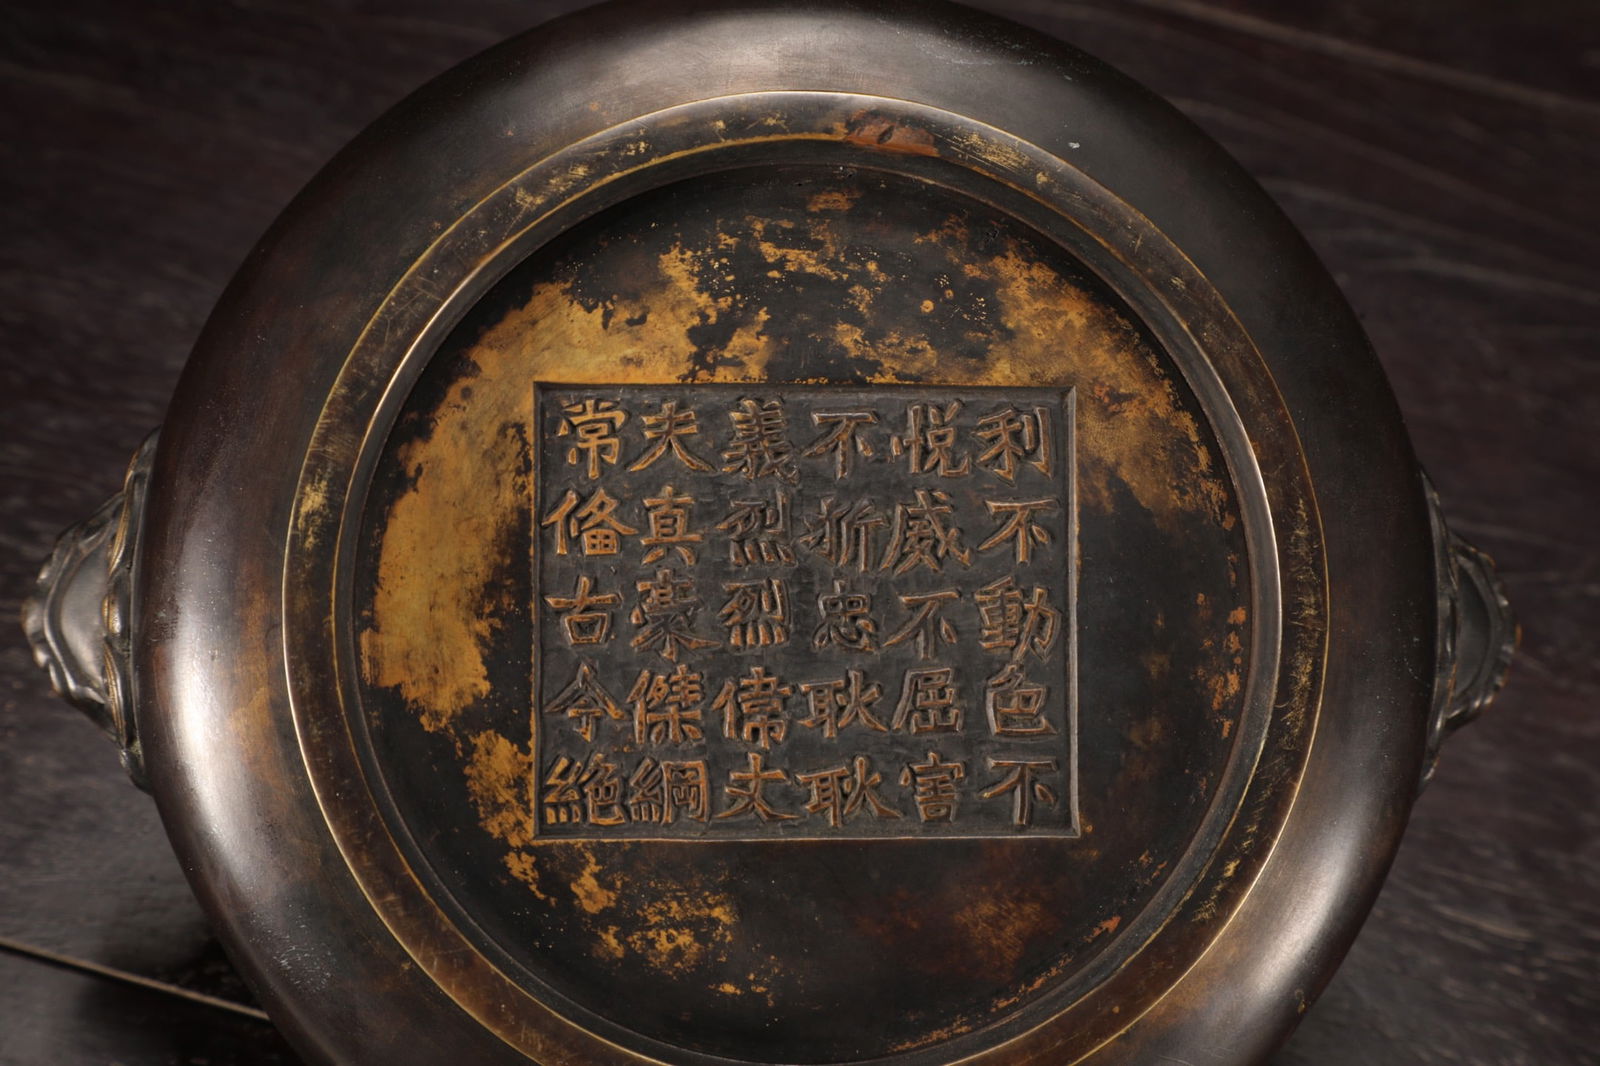 利不動色不
悅威不屈害
不折忠耿耿
義烈烈偉丈
夫真豪傑綱
常俻古今絶